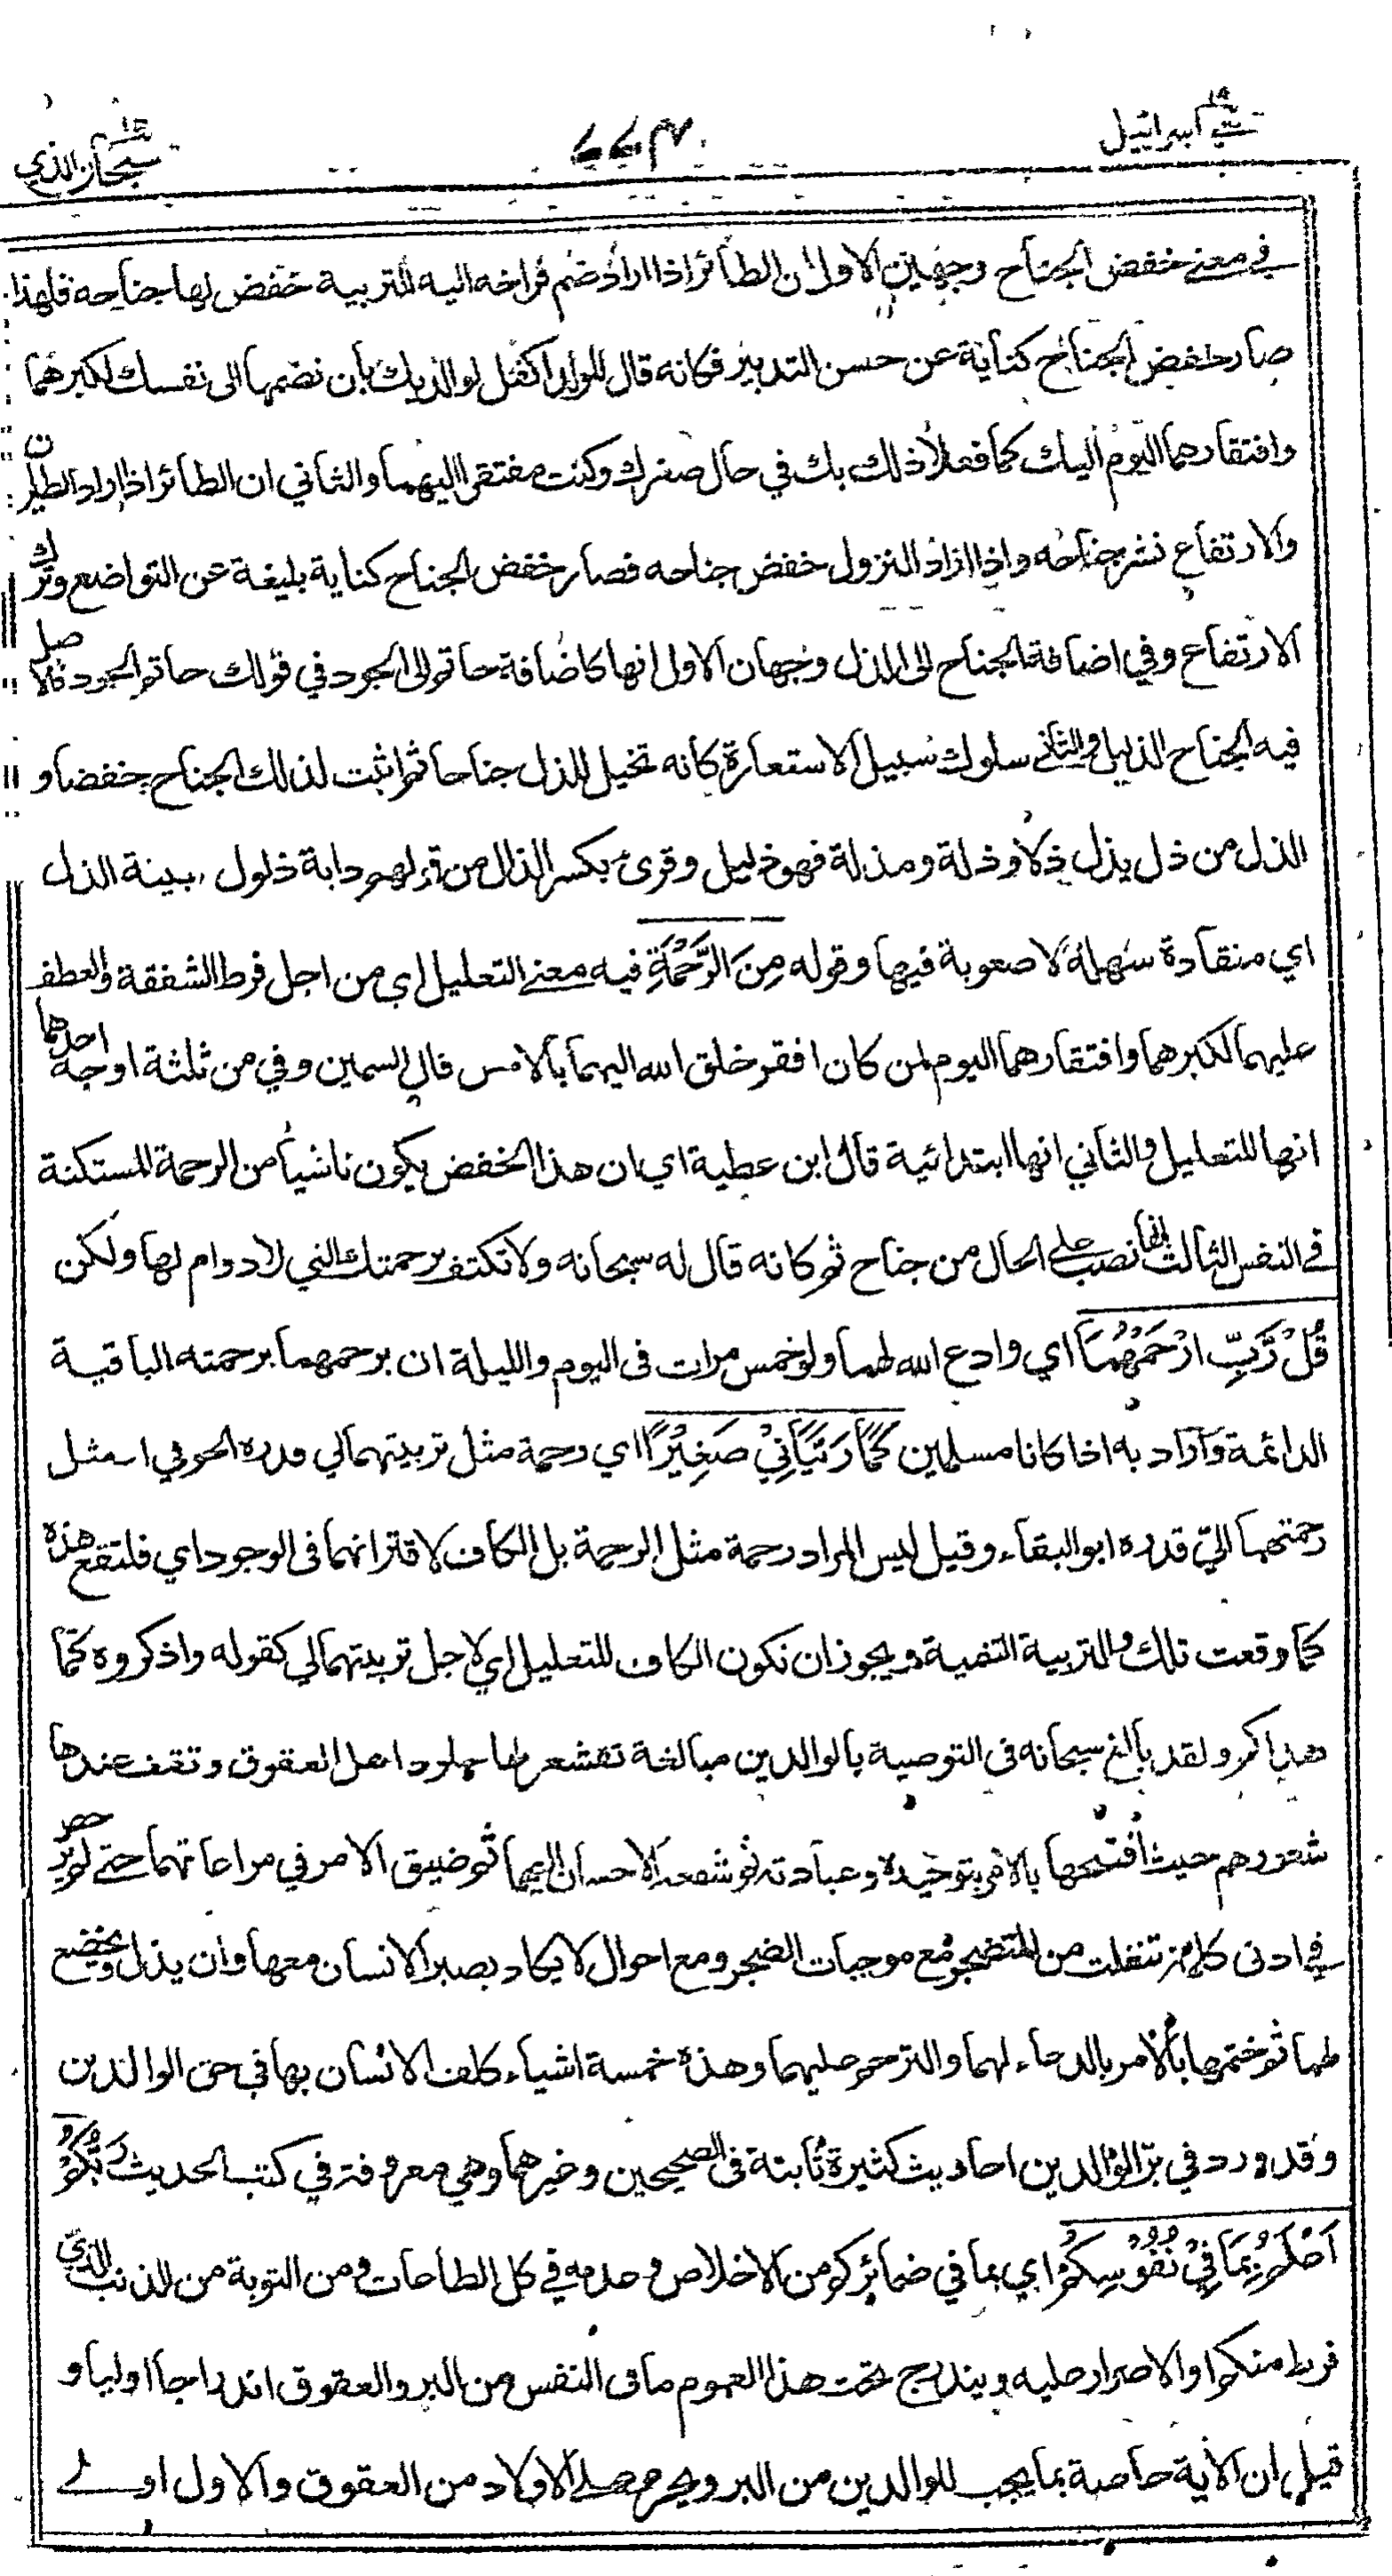 بني اسرائيل ١٧
٦٦٣
سبحان الذي ١٥
في معنى خفض الجناح وجهين الاول ان الطائر اذا اراد ضم فراخه اليه للتربية خفض لها جناحه فلهذا
صار خفض الجناح كناية عن حسن التدبير فكانه قال للولد اكفل لوالديك بان تضمهما الى نفسك لكبرهما
وافتقارهما اليوم اليك كما فعلا ذلك بك في حال صغرك وكنت مفتقرا اليهما والثاني ان الطائر اذا اراد الطيران
والارتفاع نشر جناحه واذا اراد النزول خفض جناحه فصار خفض الجناح كناية بليغة عن التواضع وترك
الارتفاع وفي اضافة الجناح الى الذل وجهان الاول انها كاضافة حاتم الى الجود في قولك حاتم الجود فالاصل
فيه الجناح الذليل والثاني سلوك سبيل الاستعارة كانه تخيل للذل جناحا ثم اثبت لذلك الجناح خفضا و
الذل من ذل يذل ذلا وذلة ومذلة فهو ذليل وقرئ بكسر الذال من قولهم دابة ذلول بينة الذل
اي منقادة سهلة لا صعوبة فيها وقوله مِنَ الرَّحْمَةِ فيه معنى التعليل اي من اجل فرط الشفقة والعطف
عليهما لكبرهما وافتقارهما اليوم لمن كان افقر خلق الله اليهما بالامس قال السمين وفي من ثلثة اوجه احدها
انها للتعليل والثاني انها ابتدائية قال ابن عطية اي ان هذا الخفض يكون ناشيا من الرحمة المستكنة
في النفس الثالث انها نصب على الحال من جناح ثم كانه قال له سبحانه ولا تكتف برحمتك التي لا دوام لها ولكن
قُلْ رَّبِّ ارْحَمْهُمَا اي وادع الله لهما ولو خمس مرات في اليوم والليلة ان يرحمهما برحمته الباقية
الدائمة واراد به اذا كانا مسلمين كَمَا رَبَّيَانِيْ صَغِيْرًا اي رحمة مثل تربيتهما لي قدره الحوفي او مثل
رحمتهما الي قدره ابو البقاء وقيل ليس المراد رحمة مثل الرحمة بل الكاف لاقترانهما في الوجود اي فلتقع هذه
كما وقعت تلك والتربية التنمية ويجوز ان تكون الكاف للتعليل اي لاجل تربيتهما لي كقوله واذكروه كما
هداكم ولقد بالغ سبحانه في التوصية بالوالدين مبالغة تقشعر لها جلود اهل العقوق وتقف عندها
شعورهم حيث افتتحها بالامر بتوحيده وعبادته ثم شفعه الاحسان اليهما ثم ضيق الامر في مراعاتهما حتى لم يرخص
في ادنى كلمة تنفلت من المتضجر مع موجبات الضجر ومع احوال لا يكاد يصبر الانسان معها وان يذل ويخضع
لهما ثم ختمها بالامر بالدعاء لهما والترحم عليهما وهذه خمسة اشياء كلف الانسان بها في حق الوالدين
وقد ورد في بر الوالدين احاديث كثيرة ثابتة في الصحيحين وغيرهما وهي معروفة في كتب الحديث رَبُّكُمْ
اَعْلَمُ بِمَا فِيْ نُفُوْسِكُمْ اي بما في ضمائركم من الاخلاص وعدمه في كل الطاعات ومن التوبة من الذنب الذي
فرط منكم او الاصرار عليه ويندرج تحت هذا العموم ما في النفس من البر والعقوق اندراجا اوليا و
قيل ان الآية خاصة بما يجب للوالدين من البر ويحرم على الاولاد من العقوق والاول اولى